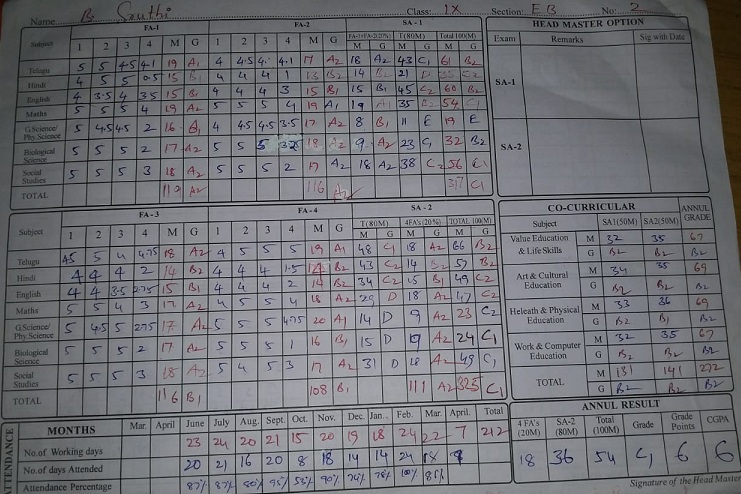 Name B. Sruthi Class: IX Section: E B No: 2
FA-1 FA-2 SA-1 HEAD MASTER OPTION
Subject 1 2 3 4 M G 1 2 3 4 M G FA-1+FA-2(20%) T(80M) Total 100(M) Exam Remarks Sig with Date
M G M G M G
Telugu 5 5 4.5 4.1 19 A1 4 4.5 4. 4.1 17 A2 18 A2 43 C1 61 B2
Hindi 5 5 5 0.5 15 B1 4 4 4 1 13 B2 14 21 D 35 C2
English 4 3.5 4 3.5 15 B1 4 4 4 3 15 B1 15 B1 45 C2 60 B2
SA-1
Maths 5 5 5 4 19 A2 5 5 5 4 19 A1 19 A1 35 54 C1
G.Science/ Phy.Science 5 4.5 4.5 2 16 4 4.5 4.5 3.5 17 A2 8 B1 11 E 19 E
Biological Science 5 5 5 2 17 A2 5 5 5 18 A2 9 A2 23 C1 32 B2
SA-2
Social Studies 5 5 5 3 18 A2 5 5 5 2 17 A2 18 A2 38 C2 56 C1
TOTAL A2 116 A2 317 C1
FA-3 FA-4 SA-2 CO-CURRICULAR
Subject 1 2 3 4 M G 1 2 3 4 M G T(80M) 4FA's (20%) TOTAL 100(M) Subject SA1(50M) SA2(50M) ANNUL GRADE
M G M G M G
Telugu 4.5 5 4 4.75 18 A2 4 5 5 5 19 A1 48 C1 18 A2 66 B2
Hindi 4 4 4 2 14 B2 4 4 4 1.5 14 B2 43 C2 14 B2 57 B2
English 4 4 3.5 2.75 15 B1 4 4 4 2 14 B2 34 C2 15 B1 49 C2
Maths 5 5 4 3 17 A2 4 5 5 4 18 A2 29 D 18 A2 47 C2
G.Science/ Phy.Science 5 4.5 5 2.75 17 A2 5 5 5 4.75 20 A1 14 D 9 A2 23 C2
Biological Science 5 5 5 2 17 A2 5 5 5 1 16 B1 15 D A2 24 C1
Social Studies 5 5 5 3 18 A2 5 4 5 3 17 A2 31 D 18 A2 49 C1
TOTAL 116 B1 108 B1 111 A2 325 C1
Value Education & Life Skills M 32 35 67
G B2 B2 B2
Art & Cultural Education M 34 35 69
G B2 B2 B2
Heleath & Physical Education M 33 36 69
G B2 B1 B2
Work & Computer Education M 32 35 67
G B2 B2 B2
TOTAL M 131 141 272
G B2 B2 B2
ATTENDANCE
MONTHS Mar. April June July Aug. Sept. Oct. Nov. Dec. Jan. Feb. Mar. April. Total
No.of Working days 23 24 20 21 15 20 19 18 24 22 7 212
No.of days Attended 20 21 16 20 8 18 14 14 24
Attendance Percentage 87% 87% 80% 95% 53% 90% 100%
ANNUL RESULT
4 FA's (20M) SA-2 (80M) Total (100M) Grade Grade Points CGPA
18 36 54 C1 6 6
Signature of the Head Master